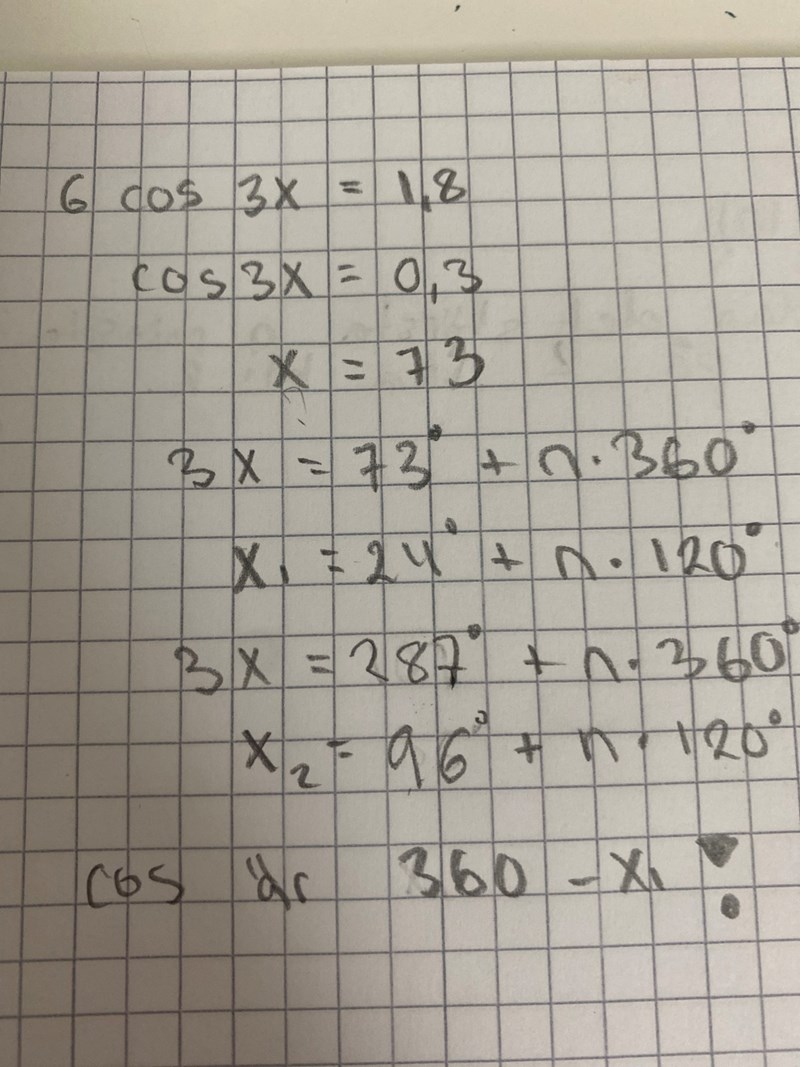 6 cos 3x = 1,8
cos 3x = 0,3
x = 73
3x = 73° + n · 360°
x₁ = 24° + n · 120°
3x = 287° + n · 360°
x₂ = 96° + n · 120°
cos är 360 - x₁ !